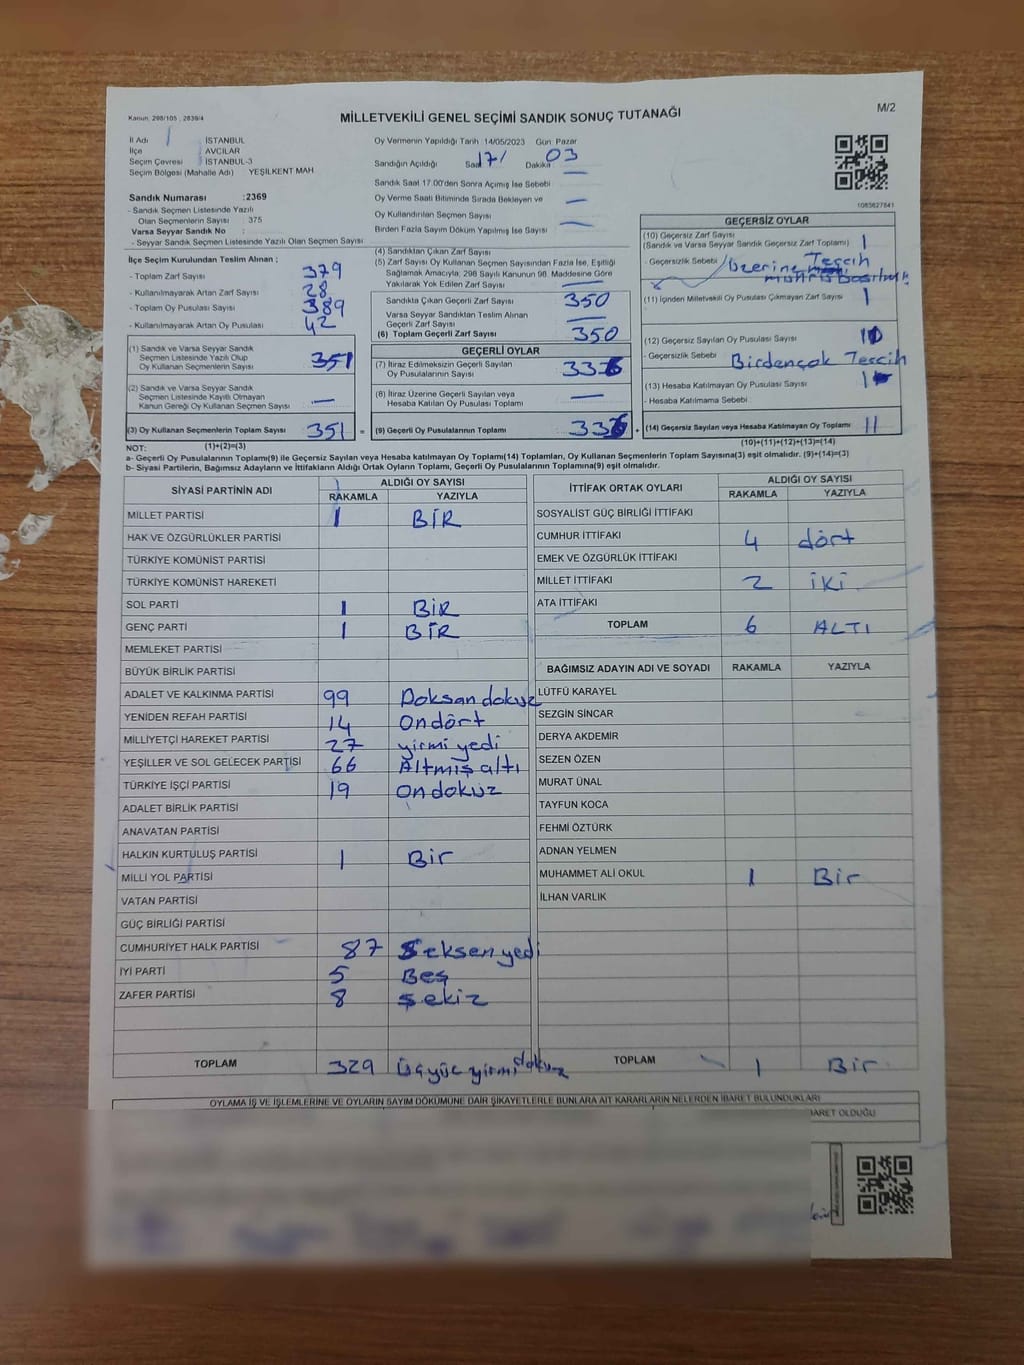 Kanun, 298/105 , 2839/4
MİLLETVEKİLİ GENEL SEÇİMİ SANDIK SONUÇ TUTANAĞI
M/2
İl Adı İSTANBUL
İlçe AVCILAR
Seçim Çevresi İSTANBUL-3
Seçim Bölgesi (Mahalle Adı) YEŞİLKENT MAH
Sandık Numarası :2369
- Sandık Seçmen Listesinde Yazılı
Olan Seçmenlerin Sayısı : 375
Varsa Seyyar Sandık No :
- Seyyar Sandık Seçmen Listesinde Yazılı Olan Seçmen Sayısı
Oy Vermenin Yapıldığı Tarih 14/05/2023 Gün: Pazar
Sandığın Açıldığı Saat 17 Dakika 03
Sandık Saat 17.00'den Sonra Açılmış İse Sebebi —
Oy Verme Saati Bitiminde Sırada Bekleyen ve —
Oy Kullandırılan Seçmen Sayısı
Birden Fazla Sayım Döküm Yapılmış İse Sayısı —
1083627841
İlçe Seçim Kurulundan Teslim Alınan ;
- Toplam Zarf Sayısı 379
- Kullanılmayarak Artan Zarf Sayısı 28
- Toplam Oy Pusulası Sayısı 389
- Kullanılmayarak Artan Oy Pusulası 42
(1) Sandık ve Varsa Seyyar Sandık
Seçmen Listesinde Yazılı Olup
Oy Kullanan Seçmenlerin Sayısı 351
(2) Sandık ve Varsa Seyyar Sandık
Seçmen Listesinde Kayıtlı Olmayan
Kanun Gereği Oy Kullanan Seçmen Sayısı —
(3) Oy Kullanan Seçmenlerin Toplam Sayısı 351
(4) Sandıktan Çıkan Zarf Sayısı
(5) Zarf Sayısı Oy Kullanan Seçmen Sayısından Fazla İse, Eşitliği
Sağlamak Amacıyla, 298 Sayılı Kanunun 98. Maddesine Göre
Yakılarak Yok Edilen Zarf Sayısı —
Sandıkta Çıkan Geçerli Zarf Sayısı 350
Varsa Seyyar Sandıktan Teslim Alınan
Geçerli Zarf Sayısı —
(6) Toplam Geçerli Zarf Sayısı 350
GEÇERLİ OYLAR
(7) İtiraz Edilmeksizin Geçerli Sayılan
Oy Pusulalarının Sayısı 336
(8) İtiraz Üzerine Geçerli Sayılan veya
Hesaba Katılan Oy Pusulası Toplamı —
= (9) Geçerli Oy Pusulalarının Toplamı 336 +
GEÇERSİZ OYLAR
(10) Geçersiz Zarf Sayısı
(Sandık ve Varsa Seyyar Sandık Geçersiz Zarf Toplamı) 1
- Geçersizlik Sebebi Üzerine Tercih
(11) İçinden Milletvekili Oy Pusulası Çıkmayan Zarf Sayısı 1
(12) Geçersiz Sayılan Oy Pusulası Sayısı
- Geçersizlik Sebebi Birdençok Tercih
(13) Hesaba Katılmayan Oy Pusulası Sayısı
- Hesaba Katılmama Sebebi
(14) Geçersiz Sayılan veya Hesaba Katılmayan Oy Toplamı 11
NOT: (1)+(2)=(3)
(10)+(11)+(12)+(13)=(14)
a- Geçerli Oy Pusulalarının Toplamı(9) ile Geçersiz Sayılan veya Hesaba katılmayan Oy Toplamı(14) Toplamları, Oy Kullanan Seçmenlerin Toplam Sayısına(3) eşit olmalıdır. (9)+(14)=(3)
b- Siyasi Partilerin, Bağımsız Adayların ve İttifakların Aldığı Ortak Oyların Toplamı, Geçerli Oy Pusulalarının Toplamına(9) eşit olmalıdır.
SİYASİ PARTİNİN ADI ALDIĞI OY SAYISI
RAKAMLA YAZIYLA
MİLLET PARTİSİ 1 BİR
HAK VE ÖZGÜRLÜKLER PARTİSİ
TÜRKİYE KOMÜNİST PARTİSİ
TÜRKİYE KOMÜNİST HAREKETİ
SOL PARTİ 1 BİR
GENÇ PARTİ 1 BİR
MEMLEKET PARTİSİ
BÜYÜK BİRLİK PARTİSİ
ADALET VE KALKINMA PARTİSİ 99 Doksan dokuz
YENİDEN REFAH PARTİSİ 14 Ondört
MİLLİYETÇİ HAREKET PARTİSİ 27 yirmi yedi
YEŞİLLER VE SOL GELECEK PARTİSİ 66 Altmış altı
TÜRKİYE İŞÇİ PARTİSİ 19 Ondokuz
ADALET BİRLİK PARTİSİ
ANAVATAN PARTİSİ
HALKIN KURTULUŞ PARTİSİ 1 Bir
MİLLİ YOL PARTİSİ
VATAN PARTİSİ
GÜÇ BİRLİĞİ PARTİSİ
CUMHURİYET HALK PARTİSİ 87 Seksen yedi
İYİ PARTİ 5 Beş
ZAFER PARTİSİ 8 Sekiz
TOPLAM 329 Üçyüz yirmi dokuz
İTTİFAK ORTAK OYLARI ALDIĞI OY SAYISI
RAKAMLA YAZIYLA
SOSYALİST GÜÇ BİRLİĞİ İTTİFAKI
CUMHUR İTTİFAKI 4 dört
EMEK VE ÖZGÜRLÜK İTTİFAKI
MİLLET İTTİFAKI 2 iki
ATA İTTİFAKI
TOPLAM 6 ALTI
BAĞIMSIZ ADAYIN ADI VE SOYADI RAKAMLA YAZIYLA
LÜTFÜ KARAYEL
SEZGİN SİNCAR
DERYA AKDEMİR
SEZEN ÖZEN
MURAT ÜNAL
TAYFUN KOCA
FEHMİ ÖZTÜRK
ADNAN YELMEN
MUHAMMET ALİ OKUL 1 Bir
İLHAN VARLIK
TOPLAM 1 Bir
OYLAMA İŞ VE İŞLEMLERİNE VE OYLARIN SAYIM DÖKÜMÜNE DAİR ŞİKAYETLERLE BUNLARA AİT KARARLARIN NELERDEN İBARET BULUNDUKLARI
İBARET OLDUĞU